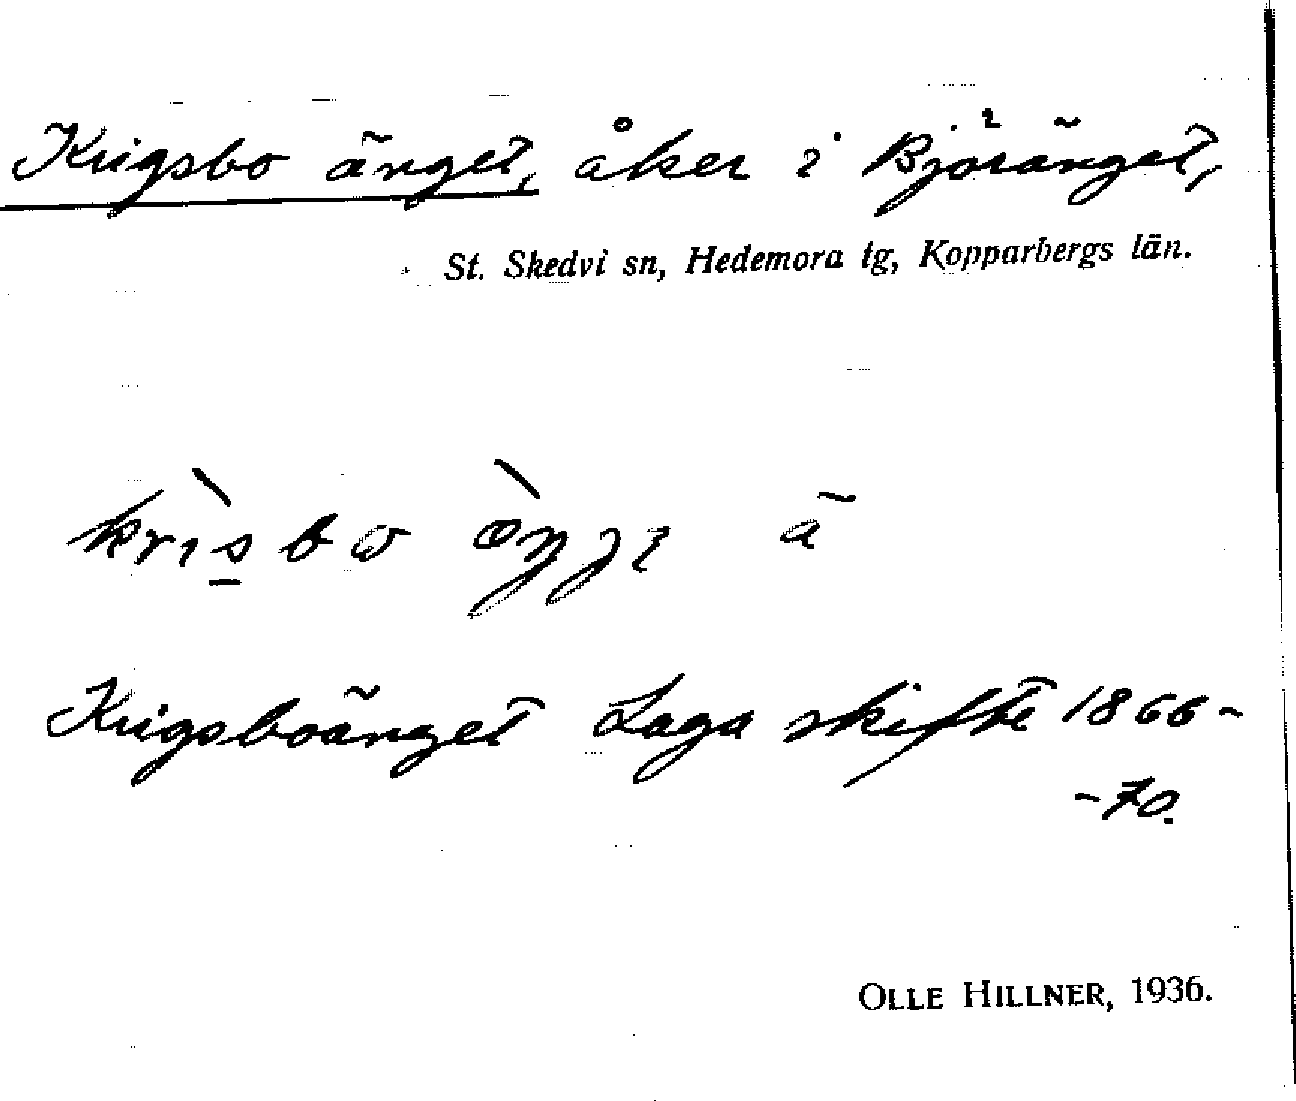 Krigsbo änget, åker i Björänget,
St. Skedvi sn, Hedemora tg, Kopparbergs län.
Krigsboänget Laga skifte 1866-
-70.
OLLE HILLNER, 1936.